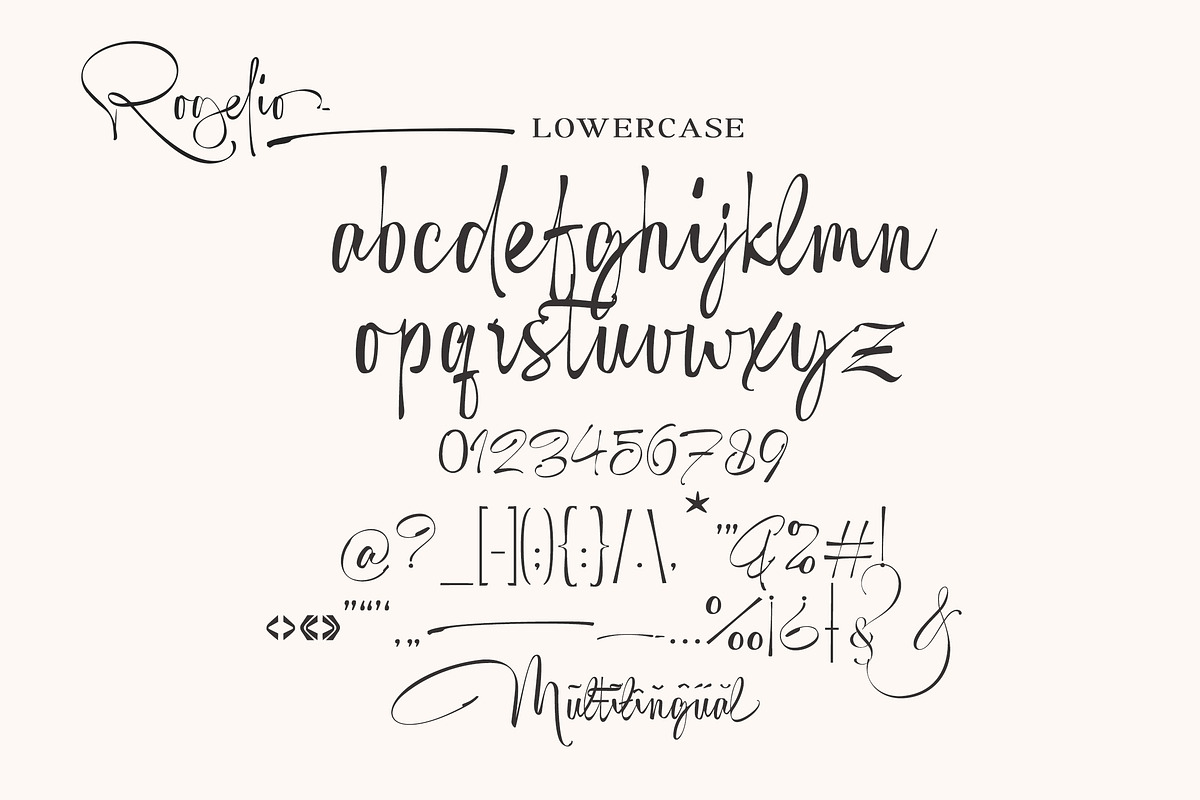 Rogelio
LOWERCASE
abcdefghijklmn
opqrstuvwxyz
0123456789
@?_[-](;){:}/.\,*'"&%#!
‹›«»"“”‘’‚„—–…‰¡¿†&?&
Multilingual